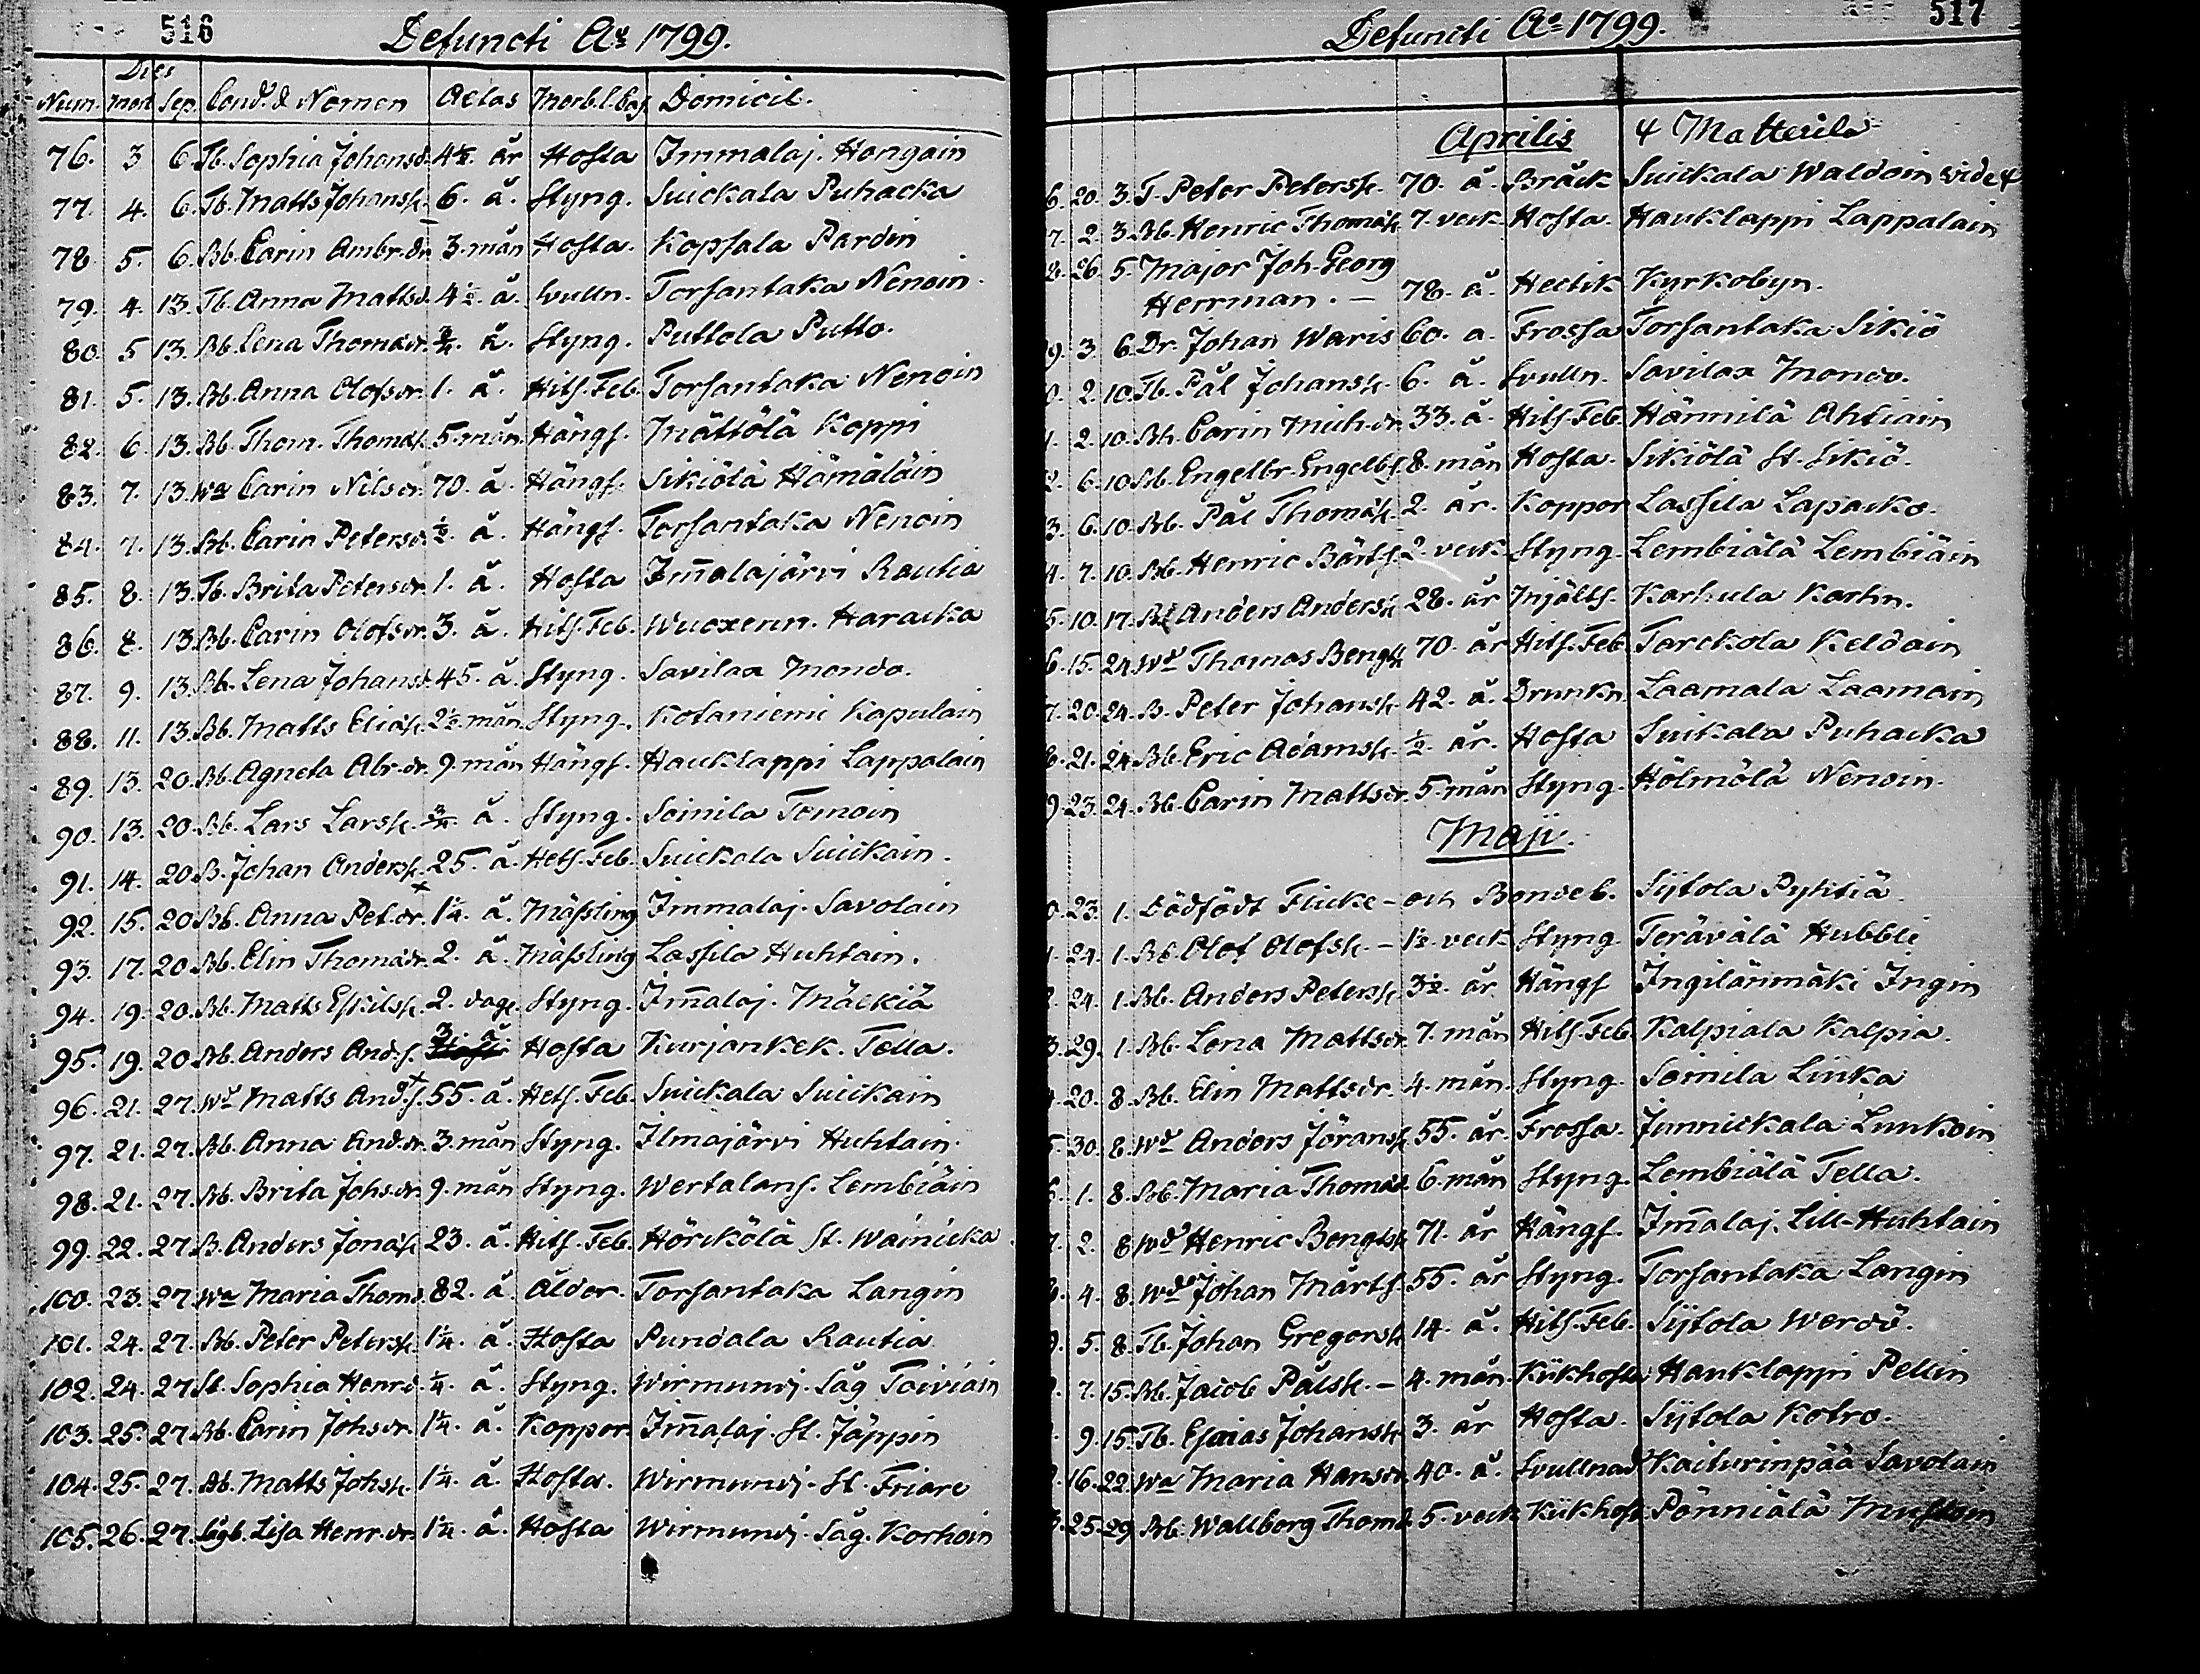 516
Defuncti Aº 1799.
Dies
Num. mort Sep. Cond. & Nomen Aetas Morb. l. Cas. Domicil.
76. 3 6. Tb. Sophia Johansd. 4½. år Hosta Immalaj. Hongain
77. 4. 6. Tb. Matts Johansk. 6. å. Styng. Suickala Puhacka
78. 5. 6. Bb. Carin Ambr.dr 3. mån Hosta. Kopsala Parden
79. 4. 13. Tb. Anna Mattsd. 4½. å. Svulln. Torsantaka Nenoin
80. 5 13. Bb. Lena Thomædr. ¾. å. Styng. Puttola Putto.
81. 5. 13. Bb. Anna Olofsdr. 1. å. Hits. Feb. Torsantaka Nenoin
82. 6. 13. Bb. Thom. Thomæs. 5. mån. Hängs. Mättölä Koppi
83. 7. 13. Wa Carin Nilsdr. 70. å. Hängs. Sikiölä Hämäläin
84. 7. 13. Bb. Carin Petersd. ½. å. Hängs. Torsantaka Nenoin
85. 8. 13. Tb. Brita Petersdr. 1. å. Hosta Im̄alajärvi Rautia
86. 8. 13. Bb. Carin Olofsdr. 3. å. Hits. Feb. Wuoxenn. Haraka
87. 9. 13. Bb. Lena Johansd. 45. å. Styng. Savilax Mondo.
88. 11. 13. Bb. Matts Eliæsk. 2½. mån Styng. Kotaniemi Kapulain
89. 13. 20. Bb. Agneta Abr.dr. 9. mån Hängs. Hauklappi Lappalain
90. 13. 20. Bb. Lars Larsk. ¾. å. Styng. Soinila Tomoin
91. 14. 20. B. Johan Andersk. 25. å. Hets. Feb. Suickala Suickain.
92. 15. 20. Bb. Anna Pet.dr. 1¼. å. Mässling Immalaj. Savolain
93. 17. 20. Bb. Elin Thomædr. 2. å. Mässling Lassila Huhtain.
94. 19. 20. Bb. Matts Eskilsk. 2. dagr Styng. Im̄alaj. Mäckiä
95. 19. 20. Bb. Anders And.s. 3. å. Hosta Kurjankek. Tella.
96. 21. 27. Wd Matts And.s. 55. å. Hets. Feb. Suickala Suickain
97. 21. 27. Bb. Anna And.dr. 3. mån Styng. Ilmajärvi Huhtain.
98. 21. 27. Bb. Brita Johsdr. 9. mån Styng. Wertalans. Lembiäin
99. 22. 27. B. Anders Jonæsk. 23. å. Hits. Feb. Hörckölä St. Wainicka
100. 23. 27. Wa Maria Thomd. 82. å. Ålder. Torsantaka Langin
101. 24. 27. Bb. Peter Petersk. 1¼. å. Hosta Pundala Rautia
102. 24. 27. St. Sophia Henrd. ¼. å. Styng. Wirmundj. Såg Toiviain
103. 25. 27. Bb. Carin Johsdr. 1¼. å. Koppor Im̄alaj. St. Jäppin
104. 25. 27. Bb. Matts Johsk. 1¼. å. Hosta. Wirmundj. St. Friare
105. 26. 27. Lisa Henr.dr. 1¼. å. Hosta Wirmundj. Såg. Korhoin
517
Defuncti Aº 1799.
Aprilis 4 Matterila
6. 20. 3. T. Peter Petersk. 70. å. Bråck Suickala Waldoin vide 4
7. 2. 3. Bb. Henric Thomæsk. 7. veck Hosta. Hauklappi Lappalain
8. 26. 5. Major Joh. Georg
Herrman. — 78. å. Hectik Kyrkobyn.
9. 3. 6. Dr. Johan Waris 60. å. Frossa Torsantaka Sikiö
0. 2. 10. Tb. Pål Johansk. 6. å. Svulln. Savilax Mondo.
1. 2. 10. Bh. Carin Mich.dr. 33. å. Hits. Feb. Härmilä Ahtiain
2. 6. 10. Bb. Engelbr. Engelbs. 8. mån Hosta. Sikiölä St. Sikiö.
3. 6. 10. Bb. Pål Thomæsk. 2. år. Koppor Lassila Lapacko.
4. 7. 10. Bb. Henric Börts. 2. veck Styng. Lembiälä Lembiäin
5. 10. 17. Anders Andersk. 28. år Mjälts. Korhula Korhn.
6. 15. 24. Wd Thomas Bengtsk 70. år Hits. Feb Tarckola Keldain
7. 20. 24. B. Peter Johansk. 42. å. Drunkn. Laamala Laamain
8. 21. 24. Bb. Eric Adamsk. ½. år. Hosta Suikala Puhacka
9. 23. 24. Bb. Carin Mattsdr. 5. mån Styng. Hölmölä Nenoin.
Maji.
0. 23. 1. Dödfödt Flicke-och Bondeb. Sijtola Pyhtiä
1. 24. 1. Bb. Olof Olofsk. — 1½. veck Styng. Terävälä Hubbli
2. 24. 1. Bb. Anders Petersk. 3½. år Hängs Ingilänmäki Ingin
3. 29. 1. Bb. Lena Mattsdr. 7. mån Hits. Feb. Kalpiala Kalpia.
4. 20. 8. Bb. Elin Mattsdr. 4. mån. Styng. Soinila Linka
5. 30. 8. Wd Anders Jöransk. 55. år. Frossa. Junnickala Lunkoin
6. 1. 8. Bb. Maria Thomæd. 6. mån Styng. Lembiälä Tella.
7. 2. 8. Wd Henric Bengtsk. 71. år Hängs. Im̄alaj. Lill-Huhtain
8. 4. 8. Wd Johan Mårts. 55. år Styng. Torsantaka Langin
9. 5. 8. Tb. Johan Gregorsk. 14. å. Hits. Feb. Sijtola Werdö.
7. 15. Bb. Jacob Pålsk. — 4. mån Kikhosta Hauklappi Pellin
9. 15. Tb. Esaias Johansk. 3. år Hosta. Sijtola Kotro.
16. 22. Wa Maria Hansdr. 40. å. Svullnad Kaiturinpää Savolain
25. 29. Bb. Wallborg Thomd. 5. veck Kikhost Pönniälä Mustoin